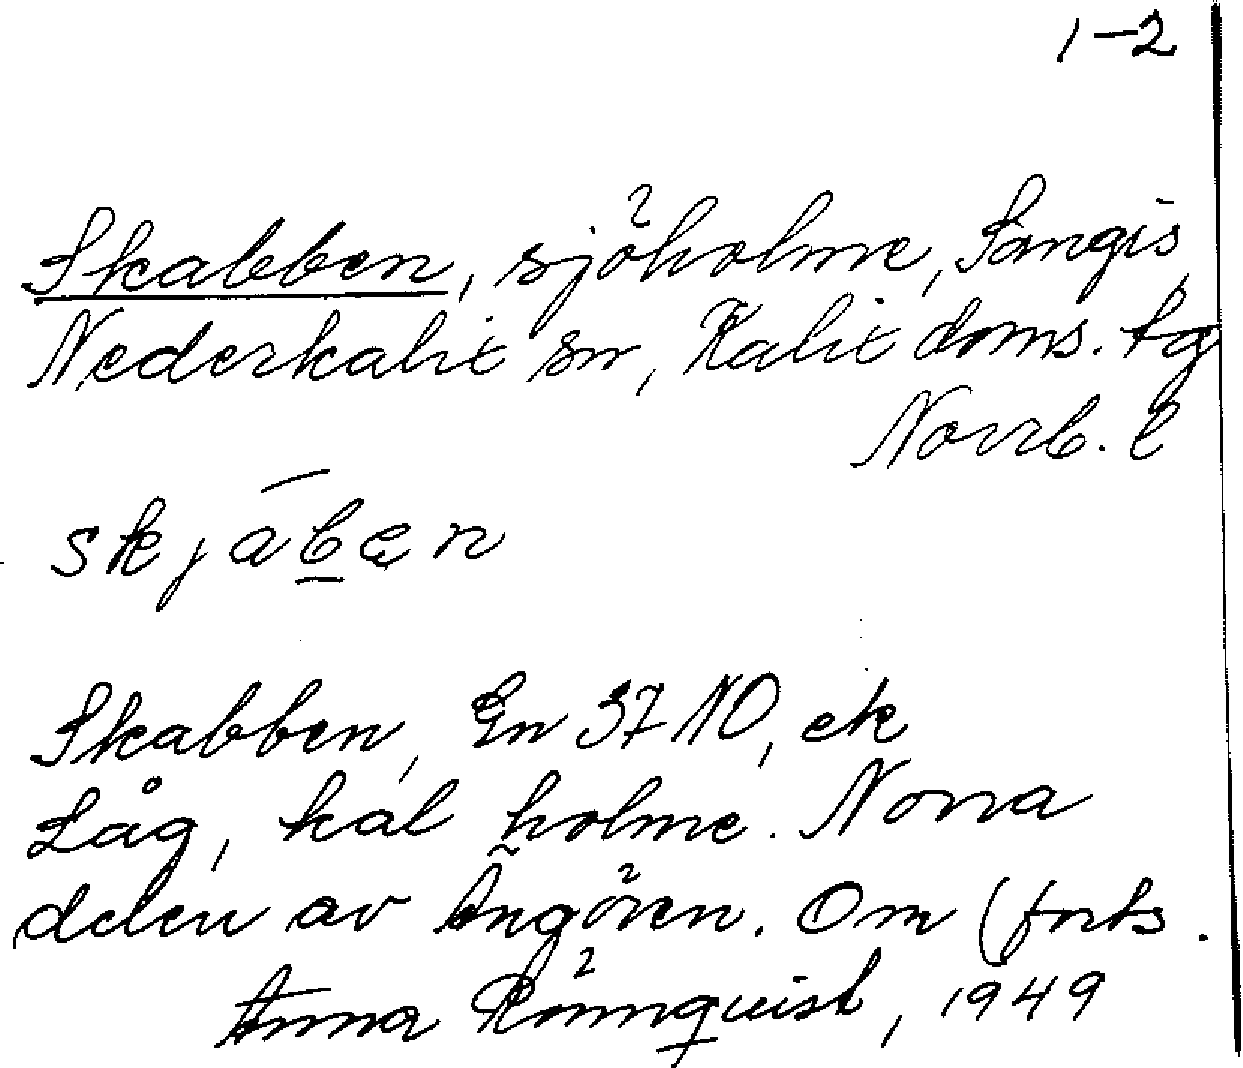 1-2
Skabben, sjöholme, Sangis
Nederkalix sn, Kalix doms. tg
Norrb. l
skjāb̲en
Skabben, En 37 NO, ek
Låg, kal holme. Norra
delen av Ängören. Om (forts.
Anna Rönnquist, 1949